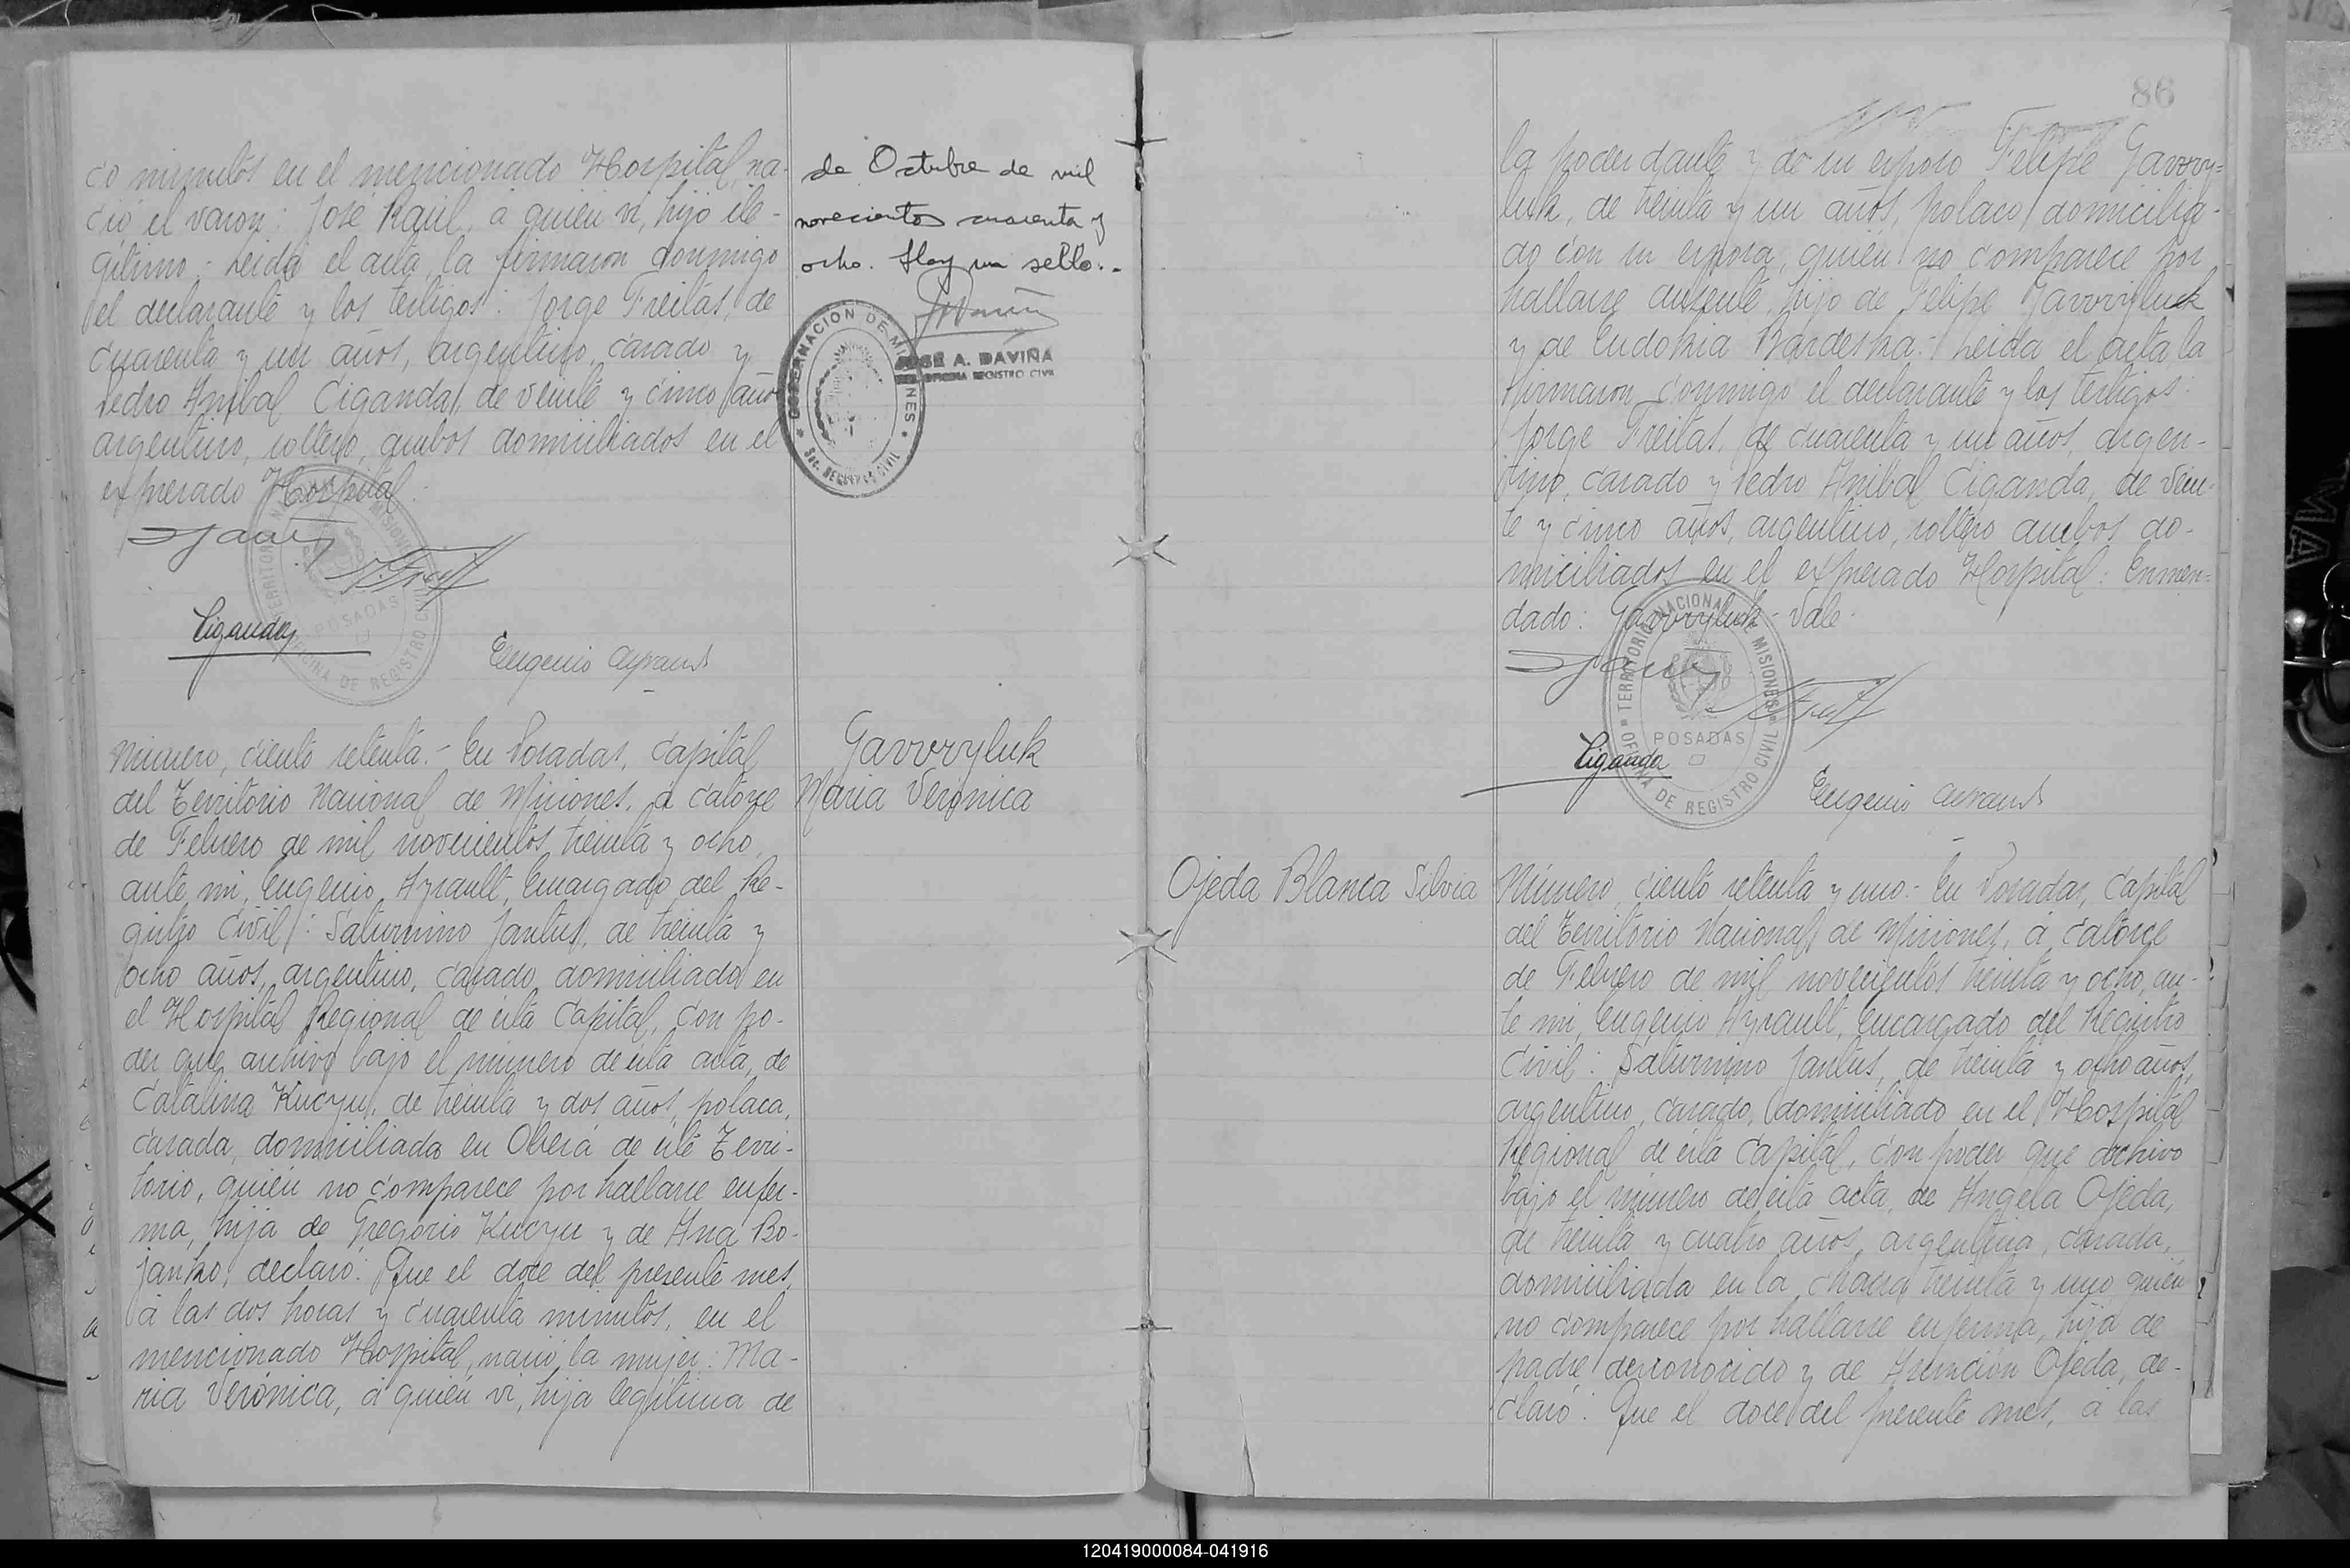 co minutos en el mencionado Hospital, na-
ció el varon: José Raúl, á quién ví, hijo ile-
gitimo.- Leida el acta, la firmaron conmigo
el declarante y los testigos: Jorge Freitas, de
cuarenta y un años, argentino, casado y
Pedro Anibal Ciganda, de veinte y cinco años
argentino, soltero, ambos domiciliados en el
expresado Hospital.-
Ciganda
Eugenio Ayrault
de Octubre de mil
novecientos cuarenta y
ocho. Hay un sello.-
GOBERNACION DE MISIONES
JOSE A. DAVIÑA
OFICINA REGISTRO CIVIL
Sec. REGISTRO CIVIL
TERRITORIO NACIONAL MISIONES
POSADAS
OFICINA DE REGISTRO CIVIL
Gavvryluk
Maria Verónica
Número, ciento setenta.- En Posadas, Capital
del Territorio Nacional de Misiones, á catorce
de Febrero de mil novecientos treinta y ocho,
ante mi, Eugenio Ayrault, Encargado del Re-
gistro Civil: Saturnino Jantus, de treinta y
ocho años, argentino, casado, domiciliado en
el Hospital Regional de ésta Capital, con po-
der que archivo bajo el número de ésta acta, de
Catalina Kucyu, de treinta y dos años, polaca,
casada, domiciliada en Oberá de éste Terri-
torio, quién no comparece por hallarse enfer-
ma, hija de Gregorio Kucyu y de Ana Bo-
janko, declaró: Que el doce del presente mes,
á las dos horas y cuarenta minutos, en el
mencionado Hospital, nació la mujer: Ma-
ria Verónica, á quién ví, hija legitima de
86
la poderdante y de su esposo Felipe Gavvry-
luk, de treinta y un años, polaco, domicilia-
do con su esposa, quién no comparece por
hallarse ausente, hijo de Felipe Gavvryluk
y de Eudokia Bardeska.- Leida el acta la
firmaron conmigo el declarante y los testigos:
Jorge Freitas, de cuarenta y un años, argen-
tino, casado y Pedro Anibal Ciganda, de vein-
te y cinco años, argentino, soltero ambos do-
miciliados en el expresado Hospital: Enmen-
dado: Gavvryluk- Vale-
TERRITORIO NACIONAL MISIONES
POSADAS
OFICINA DE REGISTRO CIVIL
Ciganda
Eugenio Ayrault
Ojeda Blanca Silvia
Número, ciento setenta y uno.- En Posadas, Capital
del Territorio Nacional de Misiones, á catorce
de Febrero de mil novecientos treinta y ocho, an-
te mi, Eugenio Ayrault, Encargado del Registro
Civil: Saturnino Jantus, de treinta y ocho años,
argentino, casado, domiciliado en el Hospital
Regional de ésta Capital, con poder que archivo
bajo el número de ésta acta, de Angela Ojeda,
de treinta y cuatro años, argentina, casada,
domiciliada en la chacra treinta y uno quién
no comparece por hallarse enferma, hija de
padre desconocido y de Asunción Ojeda, de-
claró: Que el doce del presente mes, á las
120419000084-041916